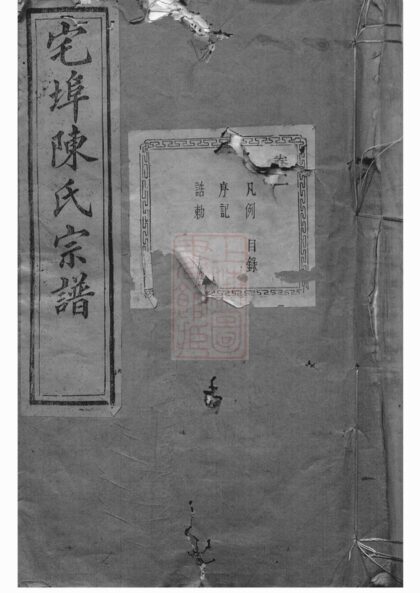 宅埠陳氏宗譜
卷一
凡例 目錄
序記
誥勅